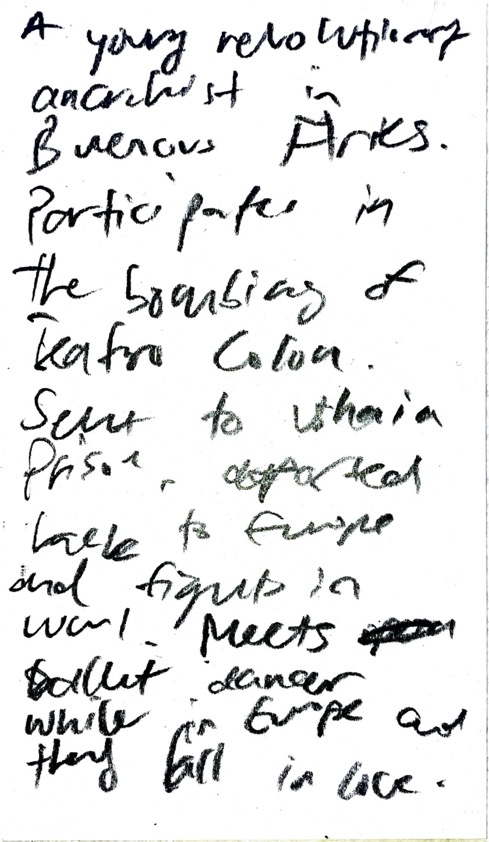 A young revolutionary
anarchist in
Buenous Aries.
Participates in
the bombing of
Teatro Colon.
Sent to Ushaia
Prison, deported
back to Europe
and fights in
WW1. Meets
ballet dancer
while in Europe and
they fall in love.